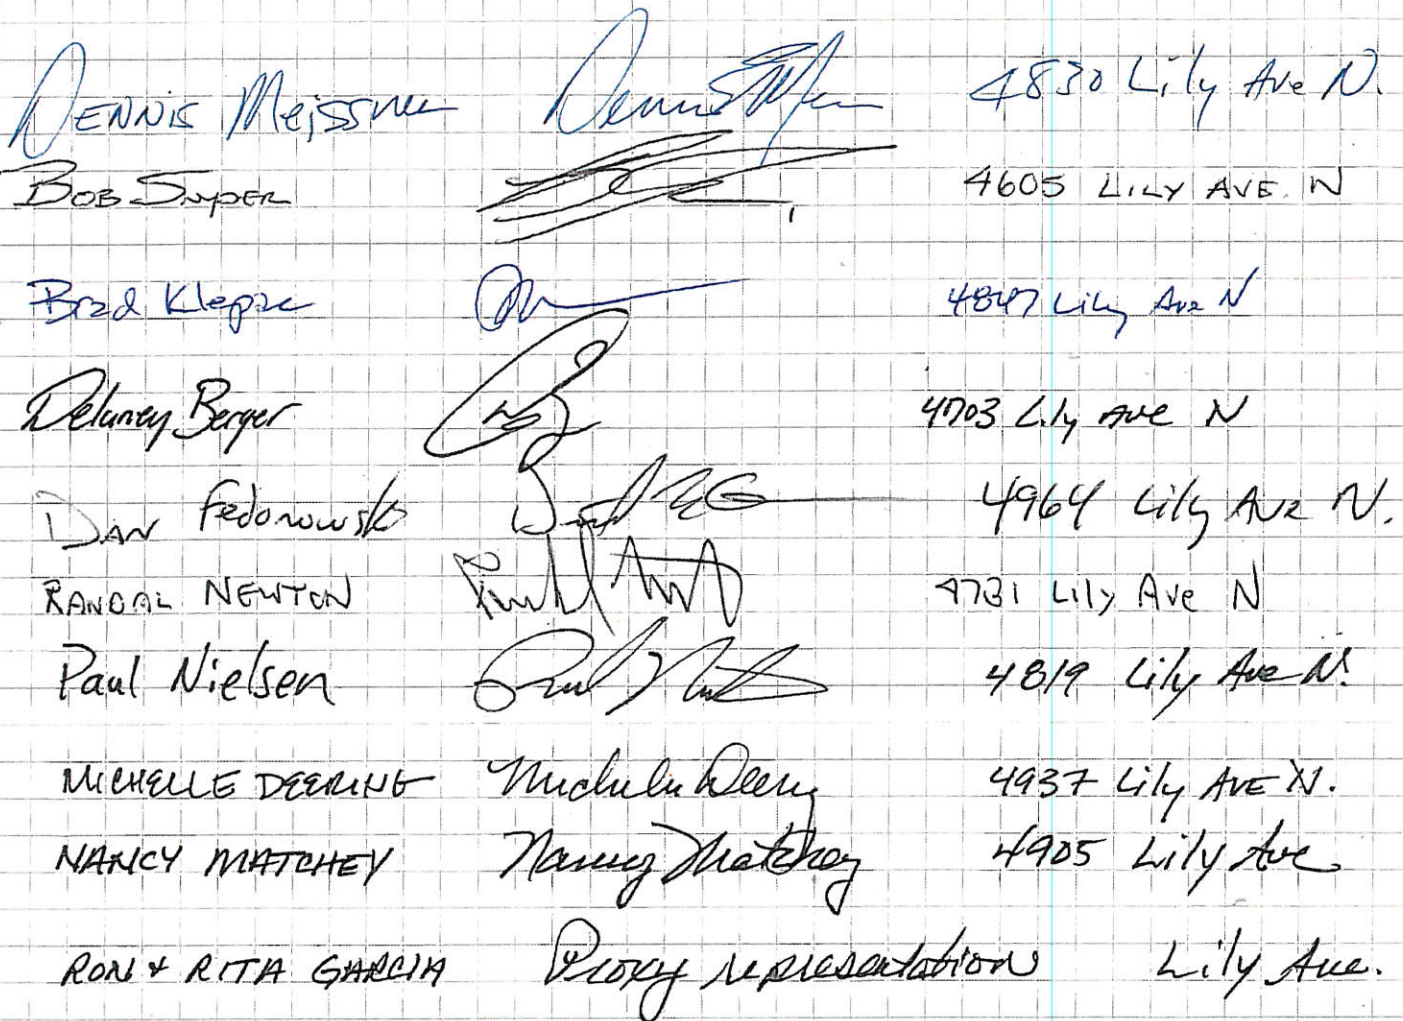 DENNIS Meissner Dennis 4830 Lily Ave N.
BOB SNYDER 4605 LILY AVE. N
Brad Klepac 4847 Lily Ave N
Delaney Berger 4703 Lily Ave N
DAN Fedorowski 4964 Lily Ave N.
RANDAL NEWTON 4731 Lily Ave N
Paul Nielsen Paul 4819 Lily Ave N.
MICHELLE DEERING Michele Deering 4937 Lily AVE N.
NANCY MATCHEY Nancy Matchey 4905 Lily Ave
RON & RITA GARCIA Proxy representation Lily Ave.